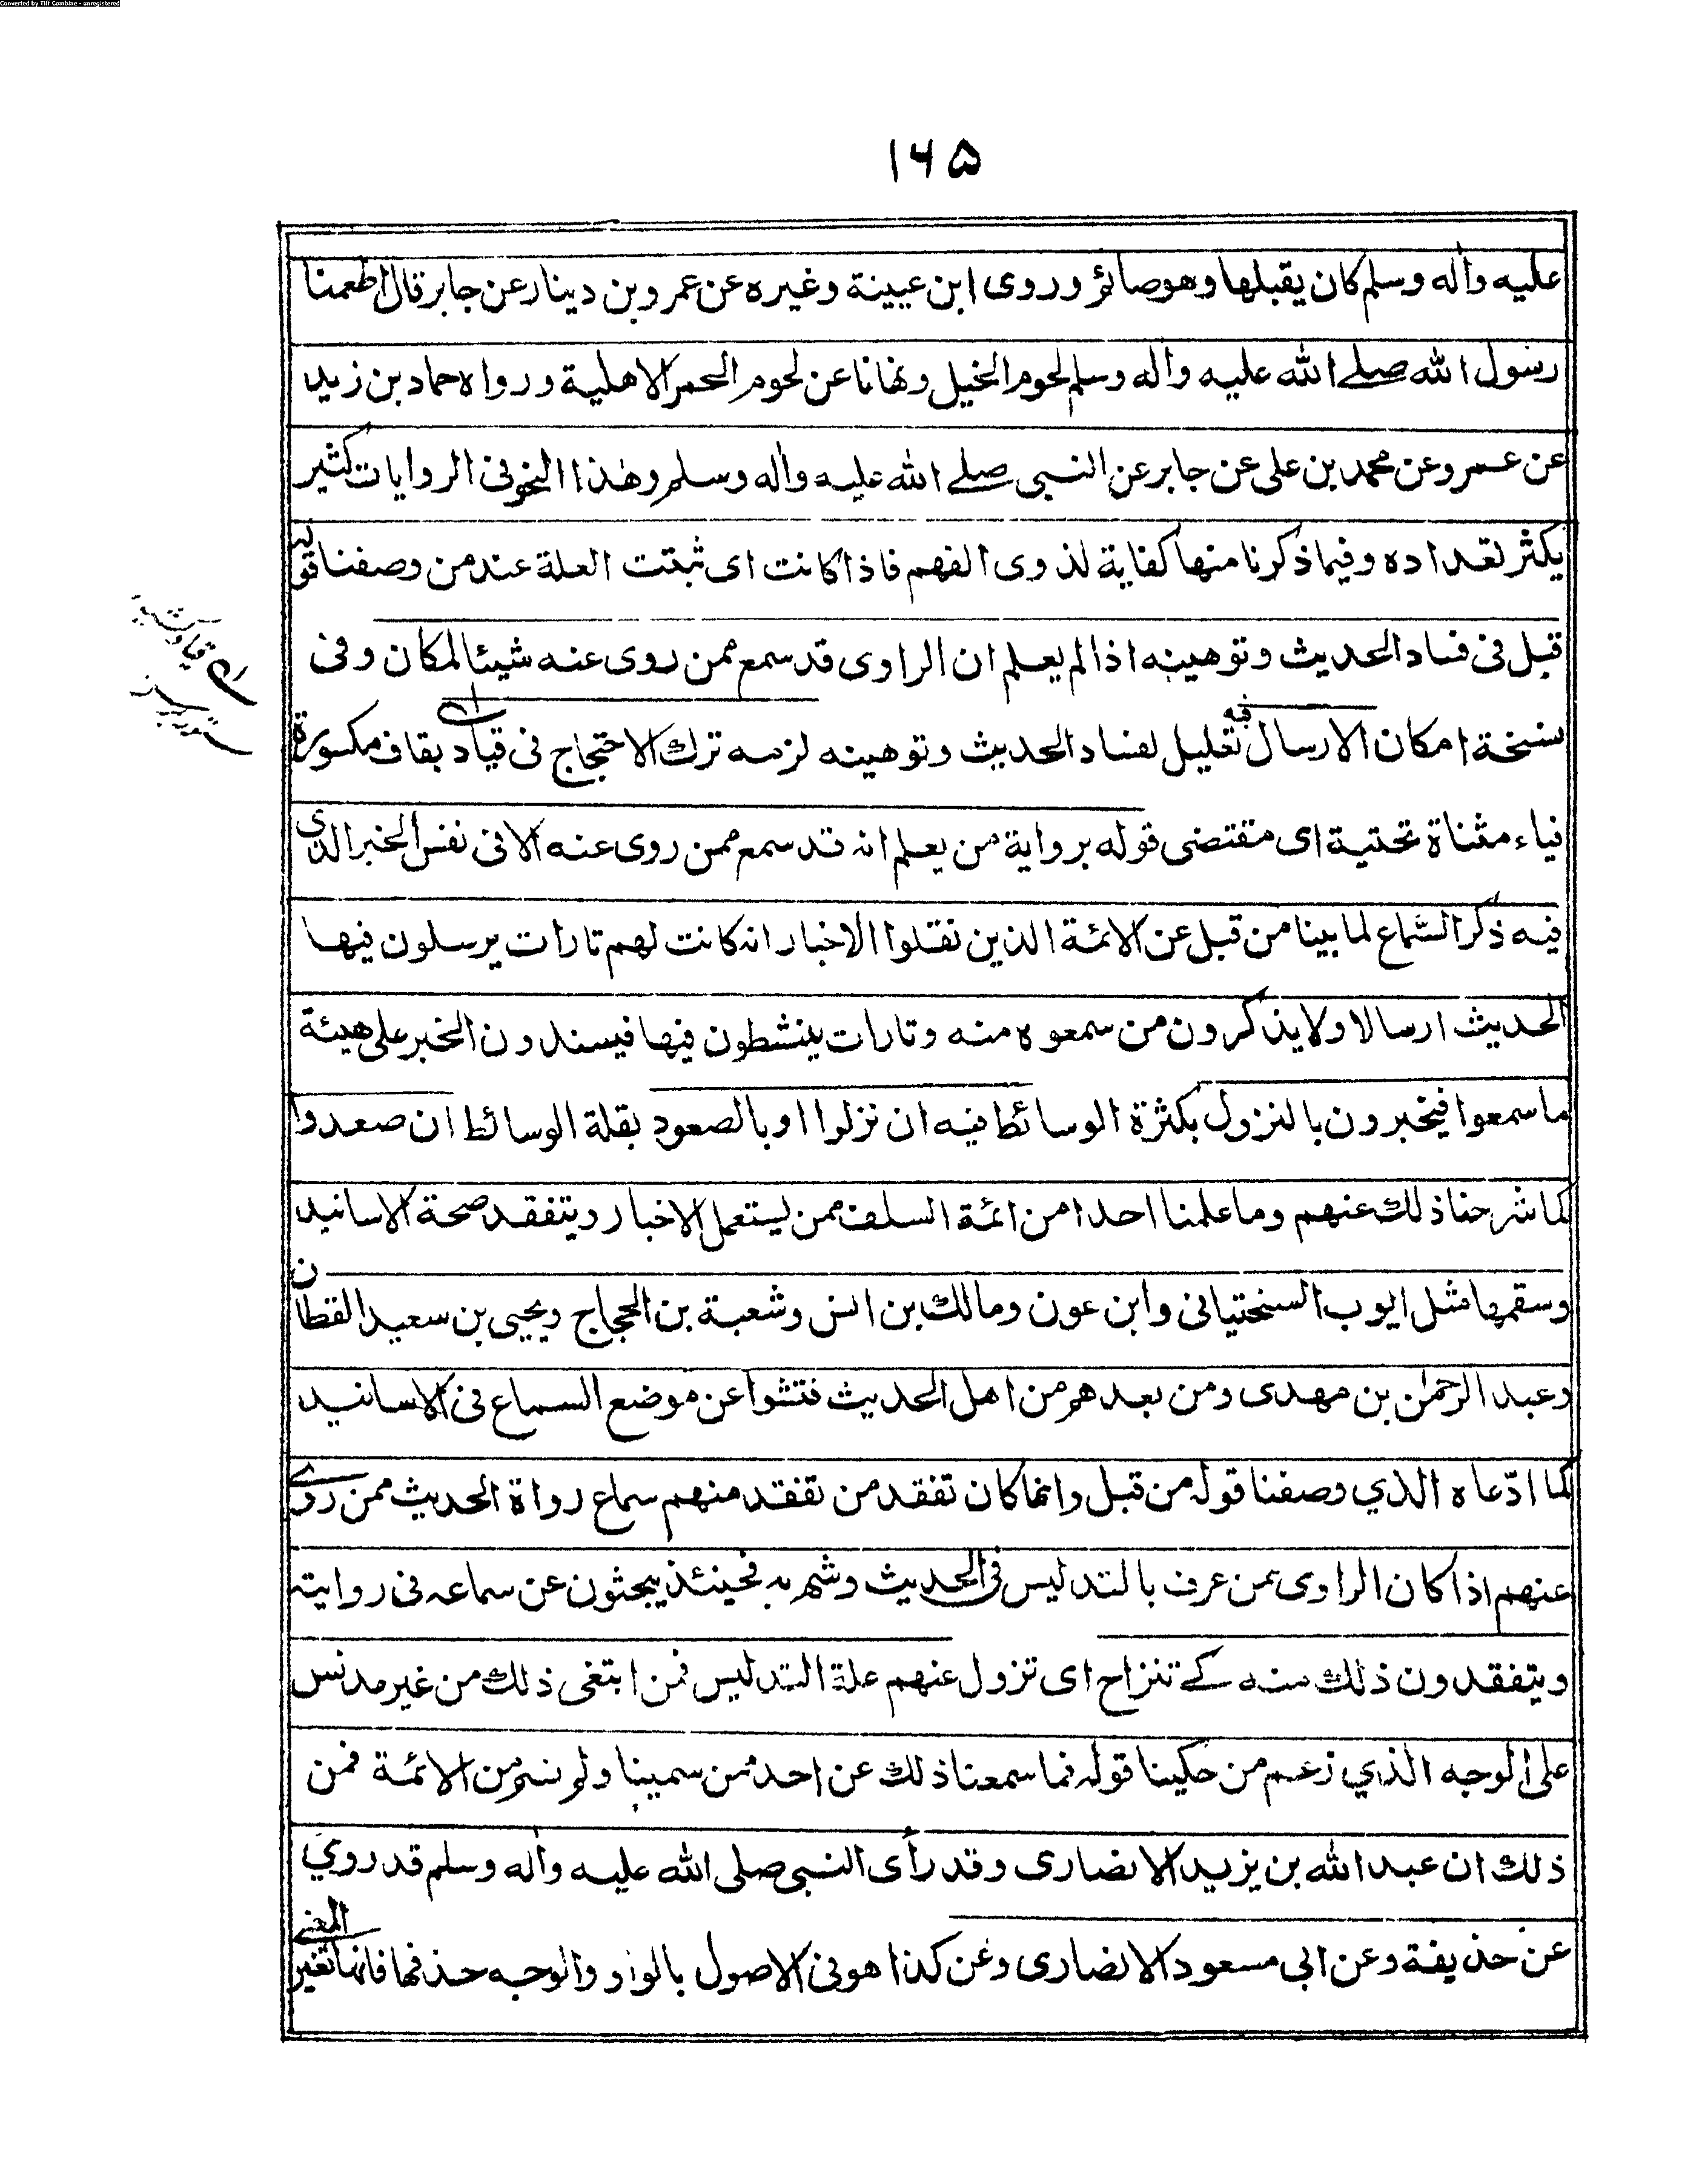 Converted by Tiff Combine - unregistered
۱۶۵
عليه واٰله وسلم كان يقبلها وهو صائم وروى ابن عيينة وغيره عن عمرو بن دينار عن جابر قال اطعمنا
رسول الله صلے الله عليه واٰله وسلم لحوم الخيل ونهانا عن لحوم الحمر الاهلية ورواه حماد بن زيد
عن عمرو عن محمد بن على عن جابر عن النبى صلے الله عليه واٰله وسلم وهٰذا النحو فى الروايات كثير
يكثر تعداده وفيما ذكرنا منها كفاية لذوى الفهم فاذا كانت اى ثبتت العلة عند من وصفنا قوله
قبل فى فساد الحديث وتوهينه اذا لم يعلم ان الراوى قد سمع ممن روى عنه شيئا لمكان وفى
نسخة امكان الارسال فيه تعليل لفساد الحديث وتوهينه لزمه ترك الاحتجاج فى قياد بقاف مكسورة
فياء مثناة تحتية اى مقتضى قوله برواية من يعلم انه قد سمع ممن روى عنه الا فى نفس الخبر الذي
فيه ذكر السّماع لما بينا من قبل عن الائمة الذين نقلوا الاخبار انه كانت لهم تارات يرسلون فيها
الحديث ارسالا ولا يذكرون من سمعوه منه وتارات ينشطون فيها فيسندون الخبر على هيئة
ما سمعوا فيخبرون بالنزول بكثرة الوسائط فيه ان نزلوا او بالصعود بقلة الوسائط ان صعدوا
كما شرحنا ذلك عنهم وما علمنا احدا من ائمة السلف ممن يستعمل الاخبار ويتفقد صحة الاسانيد
وسقمها مثل ايوب السختيانى وابن عون ومالك بن انس وشعبة بن الحجاج ويحيى بن سعيد القطان
وعبد الرحمٰن بن مهدى ومن بعدهم من اهل الحديث فتشوا عن موضع السماع فى الاسانيد
كما ادّعاه الذي وصفنا قوله من قبل وانما كان تفقد من تفقد منهم سماع رواة الحديث ممن روے
عنهم اذا كان الراوى ممن عرف بالتدليس فى الحديث وشهر به فحينئذ يبحثون عن سماعه فى روايته
ويتفقدون ذلك منه كے تنزاح اى تزول عنهم علة التدليس فمن ابتغى ذلك من غير مدلس
على الوجه الذي زعم من حكينا قوله فما سمعنا ذلك عن احد ممن سمينا ولم نسم من الائمة فمن
ذلك ان عبد الله بن يزيد الانصارى وقد رأى النبى صلى الله عليه واٰله وسلم قد روي
عن حذيفة وعن ابى مسعود الانصارى وعن كذا هو فى الاصول بالواو والوجه حذفها فانها تغير المعنے